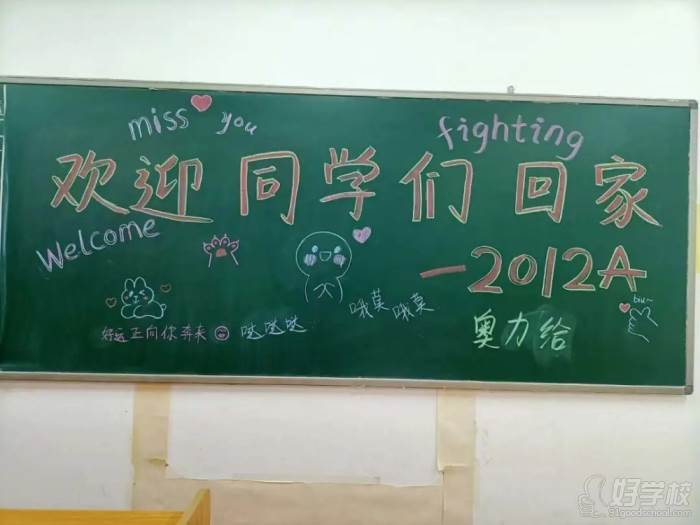 miss you
fighting
欢迎同学们回家
Welcome
-2012A
biu~
哦莫哦莫
好运正向你奔来 哒哒哒
奥力给
好学校
91goodschool.com